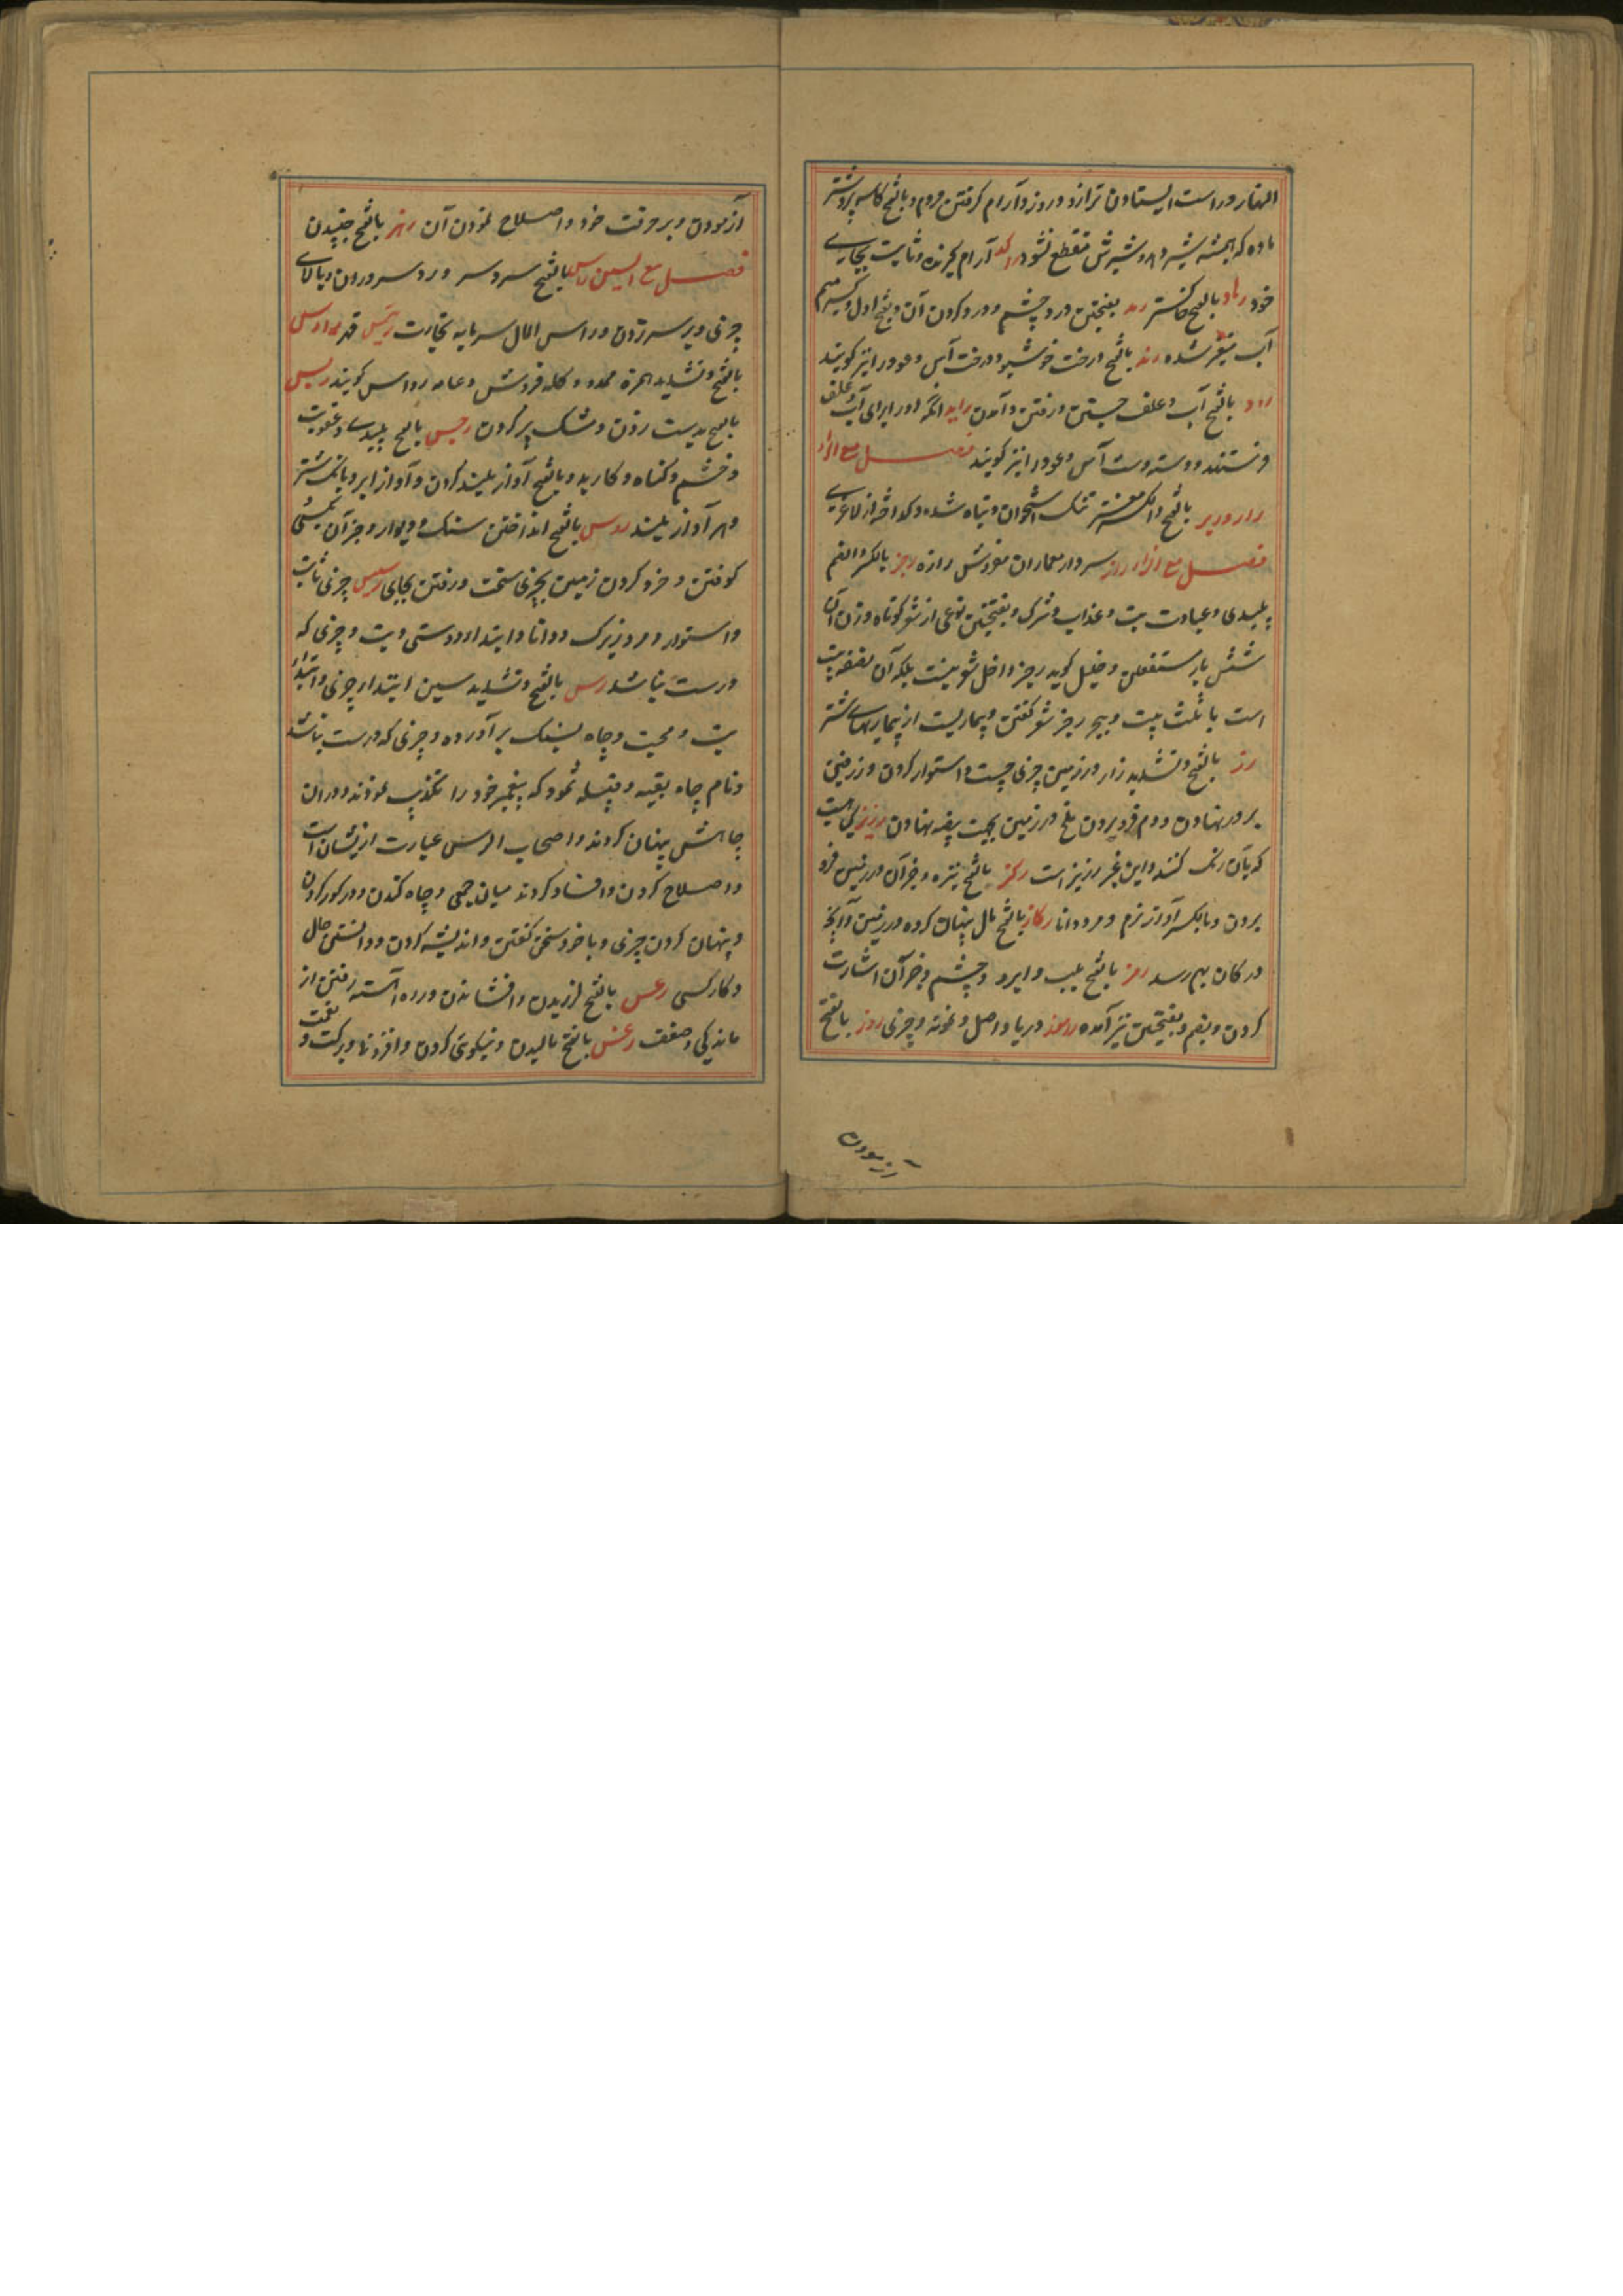 النهار و راست ایستادن ترازو و روز و آرام گرفتن مردم و بالفتح کاسه پر و شتر
ماده که همیشه شیر دهد و شیرش منقطع نشود راکد آرام گیرنده و ثابت بجای
خود رماد بالفتح خاکستر رمد بفتحتین درد چشم و درد کردن آن و بفتح اول و کسر میم
آب متغیر شده رند بالفتح درخت خوشبو و درخت آس و عود را نیز گویند
رود بالفتح آب و علف جستن و رفتن و آمدن راید آنکه او را برای آب و علف
فرستند و دسته دست آس و عود را نیز گویند فصل مع الراء
رار و ریر بالفتح و الکسر مغز تنک استخوان و تباه شده و گداخته از لاغری
فصل مع الزاء راز سردار معماران مفردش رازه رجز بالکسر و الضم
پلیدی و عبادت بت و عذاب و شرک و بفتحتین نوعی از شعر کوتاه وزن آن
شش بار مستفعلن و خلیل گوید رجز داخل شعر نیست بلکه آن نصف بیت
است یا ثلث بیت و بیجر رجز شعر گفتن و بیماریست از بیماریهای شتر
رز بالفتح و تشدید زا در زمین چیزی چست و استوار کردن و زرفین
بر در نهادن و دم فرو بردن ملخ در زمین بجهت بیضه نهادن رزیز گیاهیست
که بآن رنگ کنند و این غیر رزیز است رکز بالفتح نیزه و جز آن در زمین فرو
بردن و بالکسر آواز نرم و مرد دانا رکاز بالفتح مال پنهان کرده در زمین و آنچه
در کان بهم رسد رمز بالفتح بلب و ابرو و چشم و جز آن اشارت
کردن و بضم و بفتحتین نیز آمده راموز دریا و اصل و نمونه و چیزی روز بالفتح
آزمودن
آزمودن و بر حرفت خود و اصلاح نمودن آن رهز بالفتح جنبیدن
فصل مع السین راس بالفتح سر و سر و رو سروران و بالای
چیزی و بر سر زدن و راس المال سرمایه تجارت رئیس قهر مهر رآس
بالفتح و تشدید همزه ممدود کله فروش و عامه رواس گویند ربس
بالفتح بدست زدن و مشک پر کردن رجس بالفتح پلیدی و عقوبت
و خشم و گناه و کار بد و بالفتح آواز بلند کردن و آواز ابر و بانک شتر
و هر آواز بلند ردس بالفتح انداختن سنک و دیوار و جز آن بکسی
کوفتن و خرد کردن زمین بچیزی سخت و رفتن بجای رسیس چیزی ثابت
و استوار و مرد زیرک و دانا و ابتداء دوستی و تب و چیزی که
درست نباشد رس بالفتح و تشدید سین ابتداء چیزی و ابتداء
تب و محبت و چاه بسنک بر آورده و چیزی که درست نباشد
و نام چاه بقیه و قبیله ثمود که پیغمبر خود را تکذیب نمودند و در آن
چاهش پنهان کردند و اصحاب الرس عبارت ازیشان است
و اصلاح کردن و افساد کردن میان جمعی و چاه کندن و در گور کردن
و پنهان کردن چیزی و با خود سخن گفتن و اندیشه کردن و دانستن حال
و کار کسی رعس بالفتح لرزیدن و افشاندن و راه آهسته رفتن از
ماندگی و ضعف رغس بالفتح بالیدن و نیکوئی کردن و افزونها و برکت و نعمت